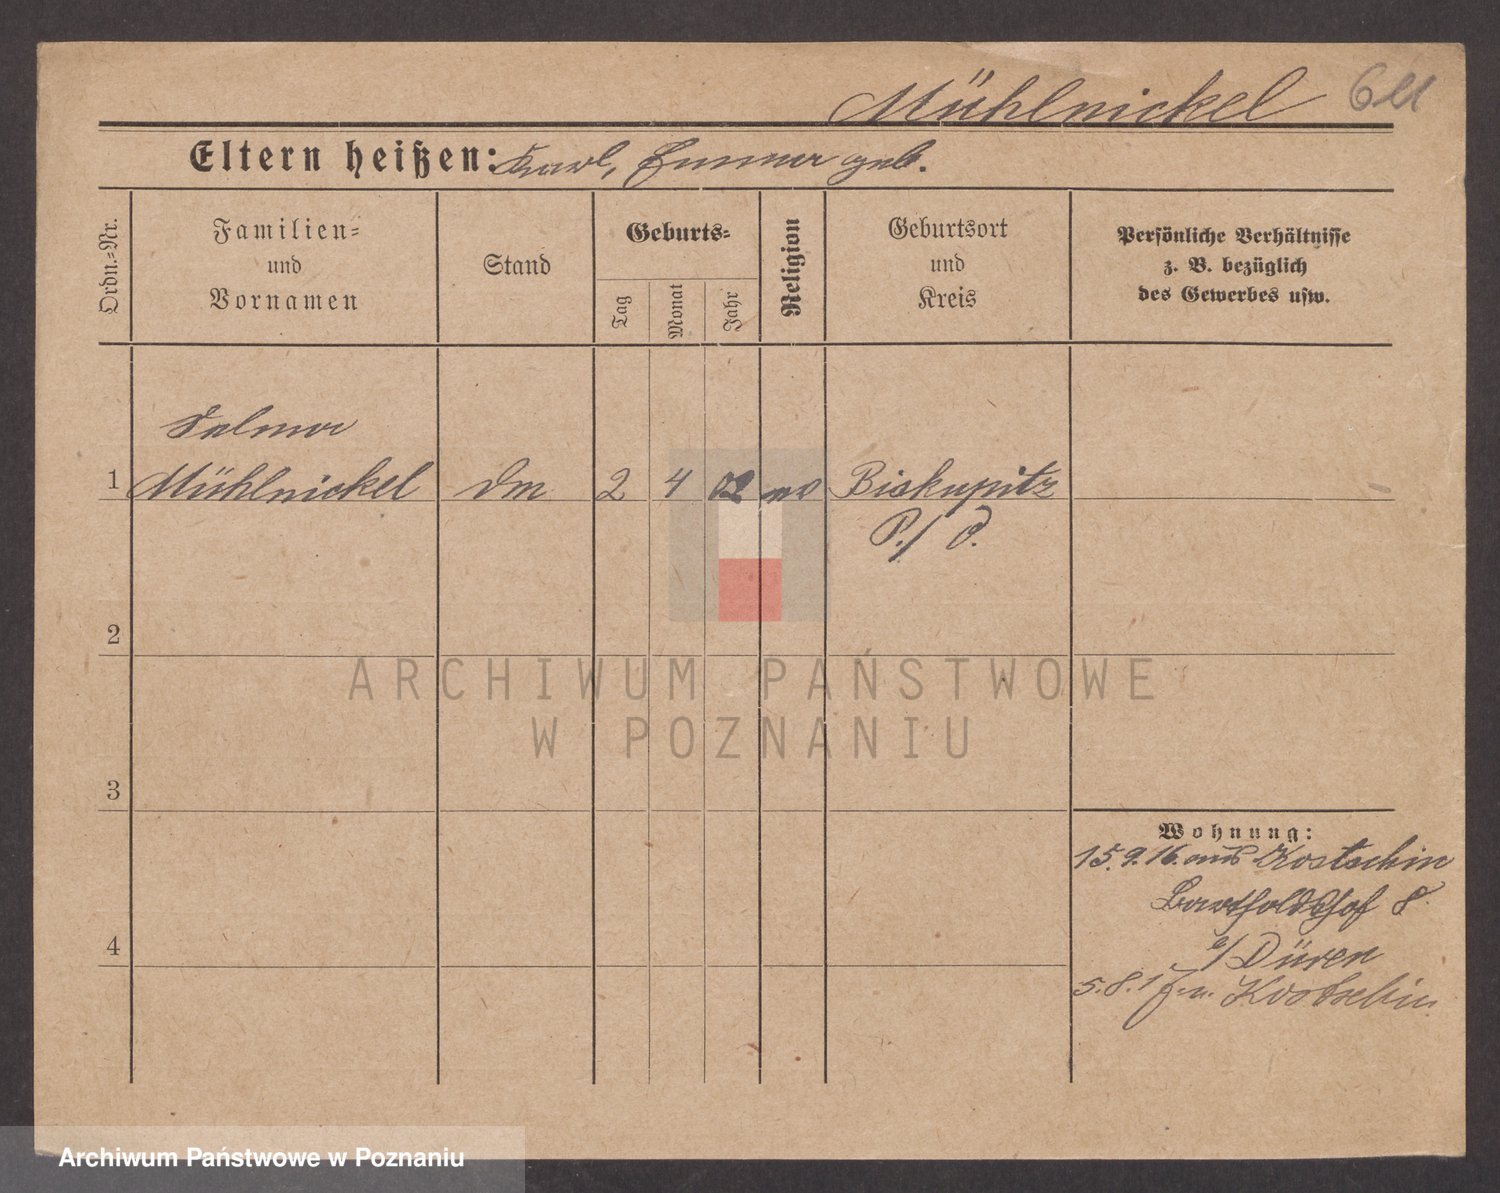 Mühlnickel
Eltern heißen: Karl, Emma geb.
Ordn.=Nr.
Familien=
und
Vornamen
Stand
Geburts=
Tag
Monat
Jahr
Religion
Geburtsort
und
Kreis
Persönliche Verhältnisse
z. B. bezüglich
des Gewerbes usw.
Selma
1 Mühlnickel Dm 2 4 02 Biskupitz
P./O.
2
3
4
Wohnung:
15.9.16. aus Kostschin
Bartholdshof 8
b/Düren
5.8.17 n. Kostschin
ARCHIWUM PAŃSTWOWE
W POZNANIU
Archiwum Państwowe w Poznaniu